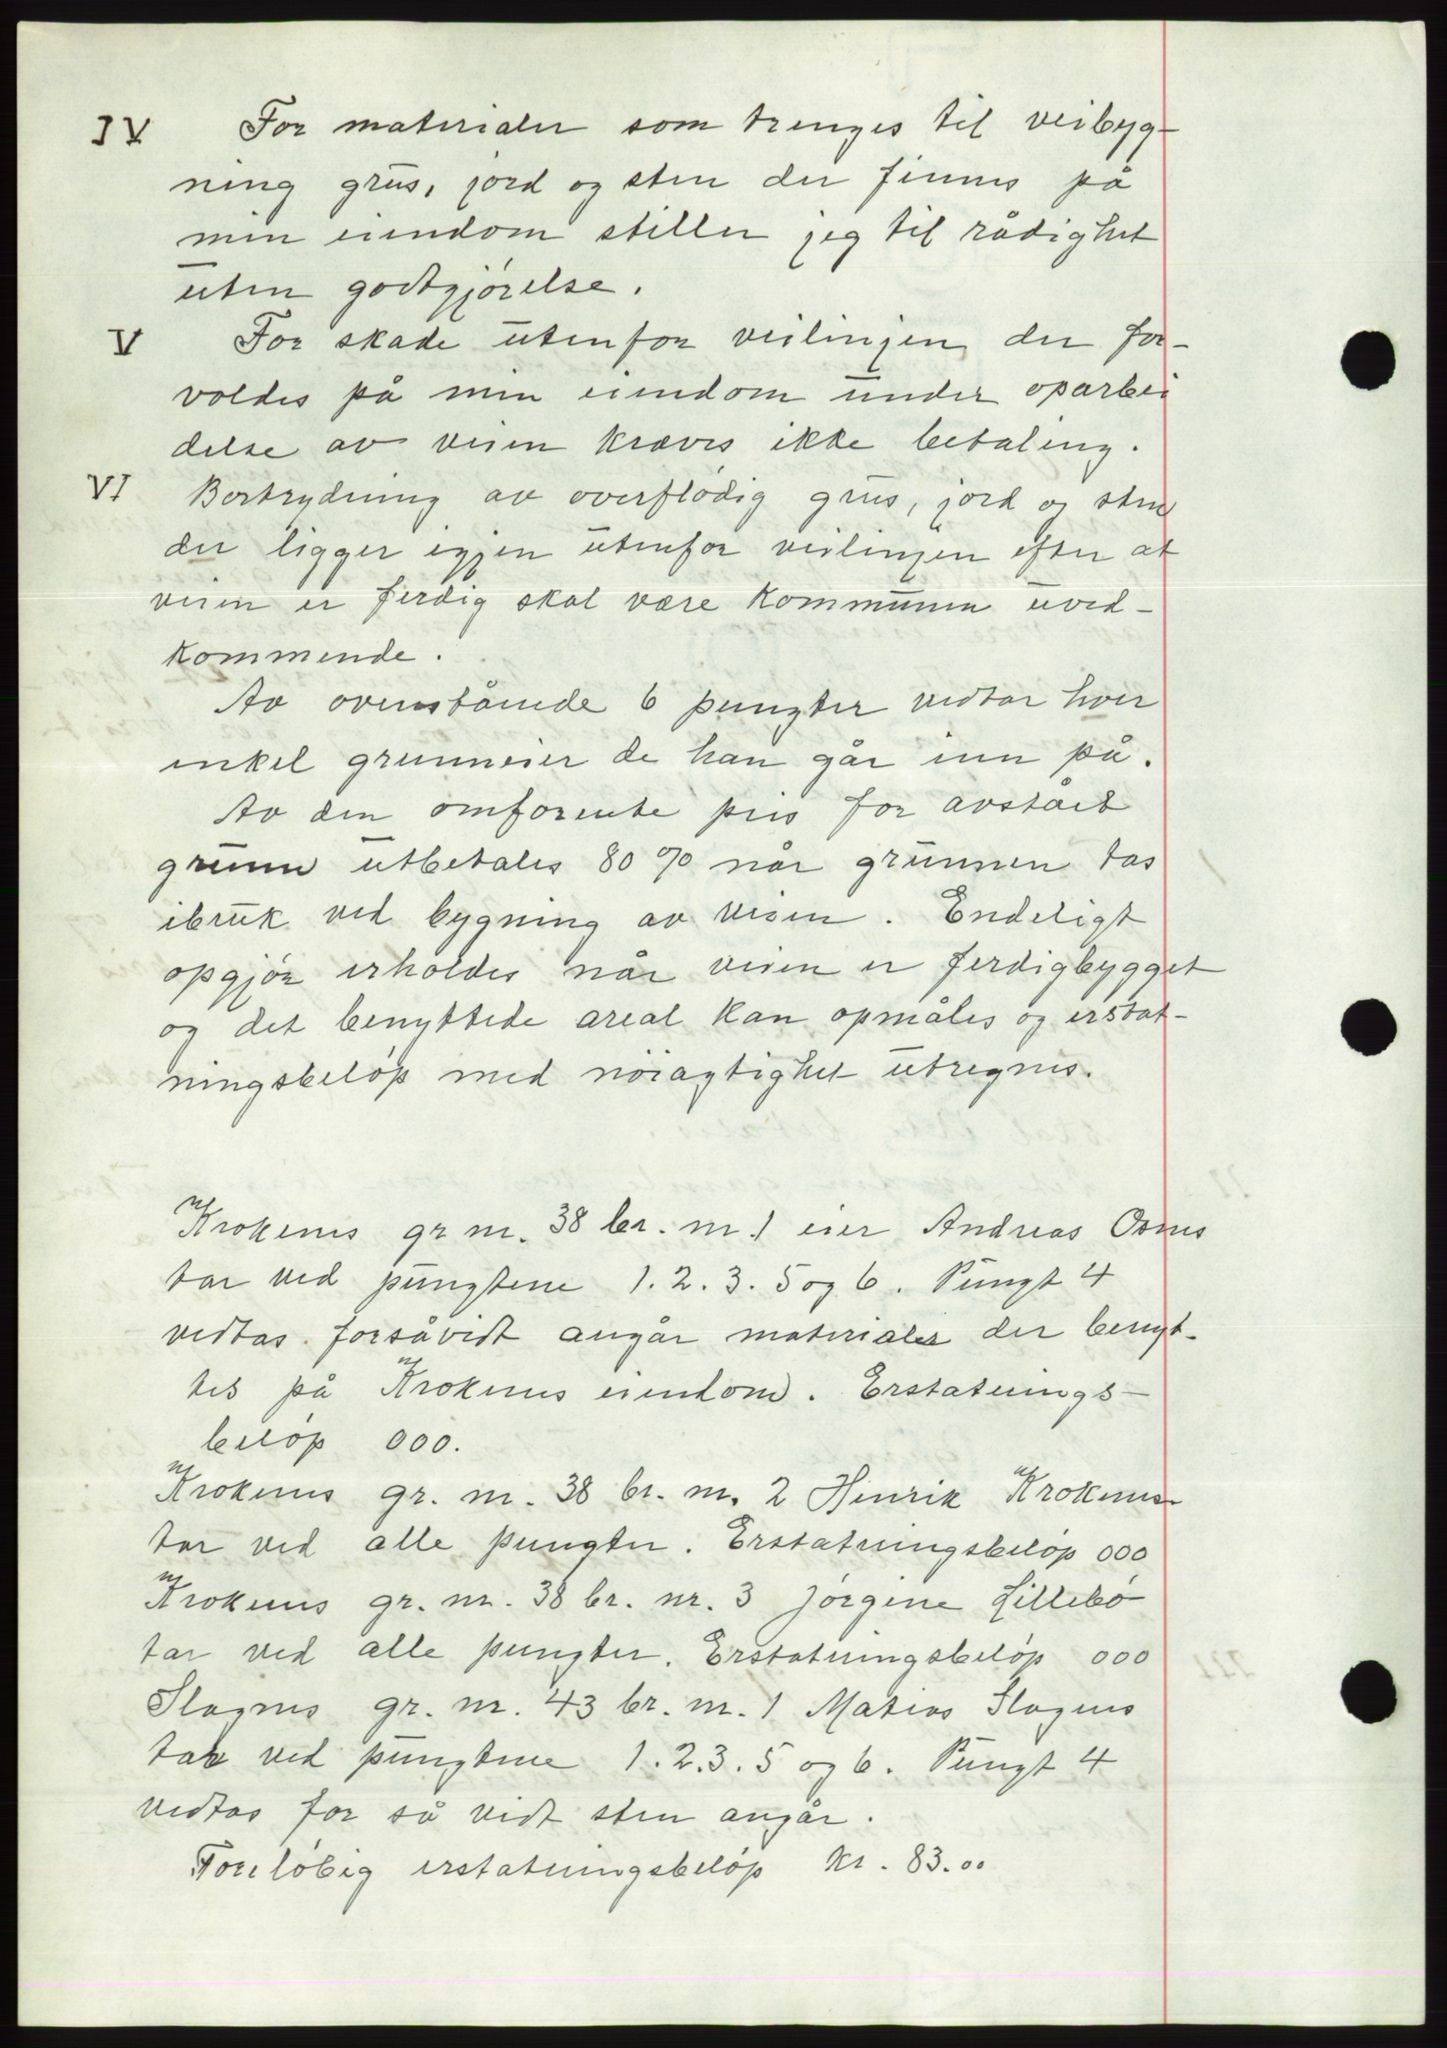 IV For materialer som trenges til veibyg-
ning grus, jord og sten der finnes på
min eiendom stiller jeg til rådighet
uten godtgjörelse.
V For skade utenfor veilinjen der for-
voldes på min eiendom under oparbei
delse av veien kræves ikke betaling.
VI Bortrydning av overflödig grus, jord og sten
der ligger igjen utenfor veilinjen efter at
veien er ferdig skal være kommunen uved-
kommende.
Av ovenstående 6 pungter vedtar hver
enkel grunneier de han går inn på.
Av den omforente pris for avstået
grunn utbetales 80 % når grunnen tas
ibruk ved bygning av veien. Endeligt
opgjör erholdes når veien er ferdigbygget
og det benyttede areal kan opmåles og erstat-
ningsbelöp med nöiagtighet utregnes.
Krokenes gr nr. 38 br. nr. 1 eier Andreas Osnes
tar ved pungtene 1. 2. 3. 5 og 6. Pungt 4
vedtas forsåvidt angår materialer der benyt-
tes på Krokenes eiendom. Erstatnings-
belöp 000.
Krokenes gr. nr. 38 br. nr. 2 Henrik Krokenes
tar ved alle pungter. Erstatningsbelöp 000
Krokenes gr. nr. 38 br. nr. 3 Jörgine Lillebö
tar ved alle pungter. Erstatningsbelöp 000
Slagnes gr. nr. 43 br. nr. 1 Matias Slagnes
tar ved pungtene 1. 2. 3. 5 og 6. Pungt 4
vedtas for så vidt sten angår.
Forelöbig erstatningsbelöp kr. 83.00